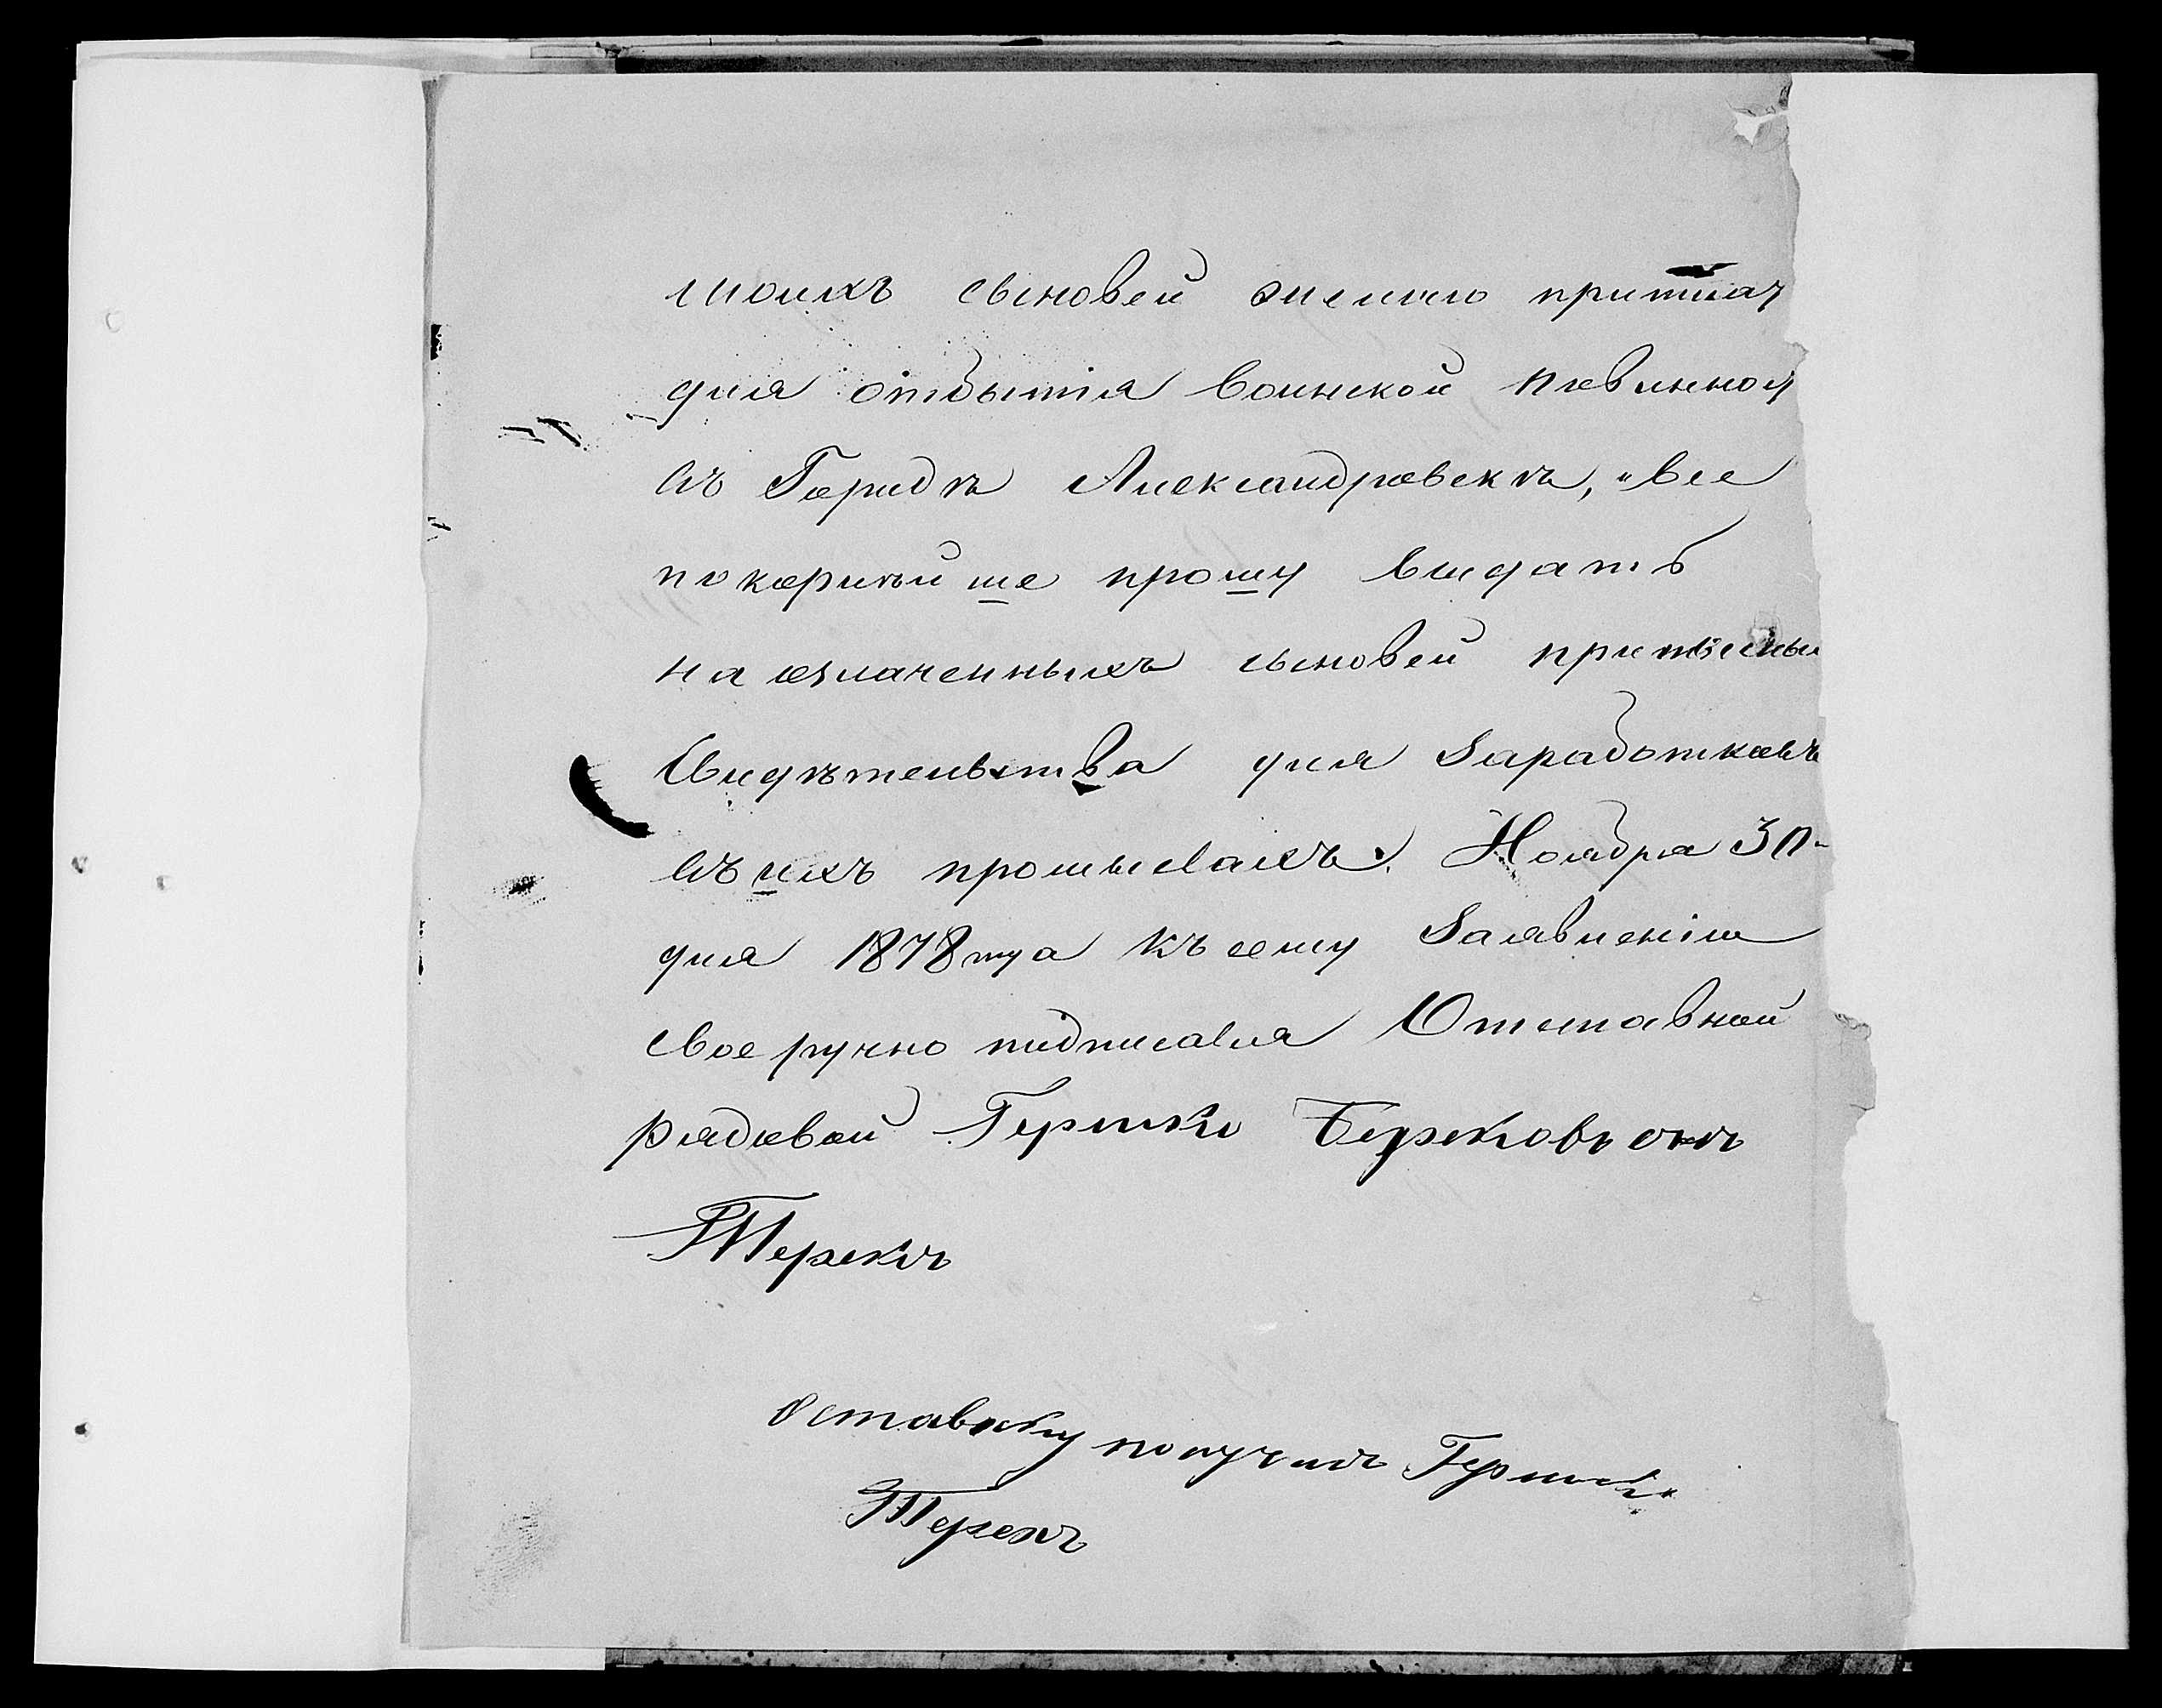 моихъ сыновей желаю приписат
для отбытія воинской повинност
въ Городѣ Александровскѣ, все
покорнѣйше прошу выдать
на означенныхъ сыновей приписны
Свидѣтельства для Заработковъ
въ ихъ промыслахъ. Ноября 30
дня 1878 года къ сему Заявленію
своеручно подписался Отставной
рядовой Гершко Берковъ
Терекъ
отставку получилъ Гершко
Терекъ